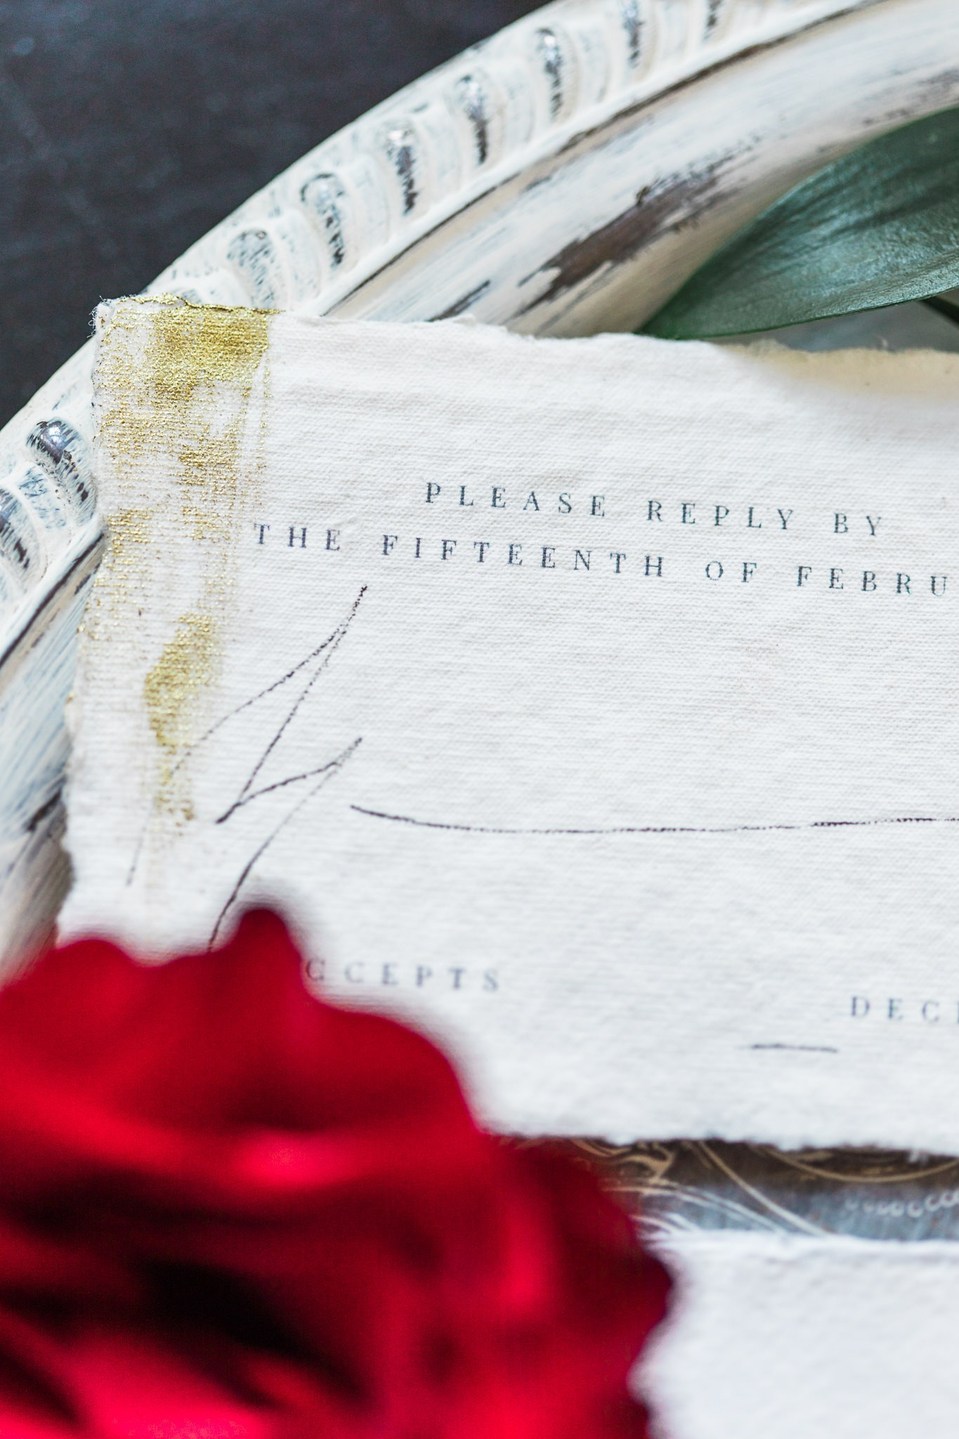 PLEASE REPLY BY
THE FIFTEENTH OF FEBRU
M
CCEPTS
DEC